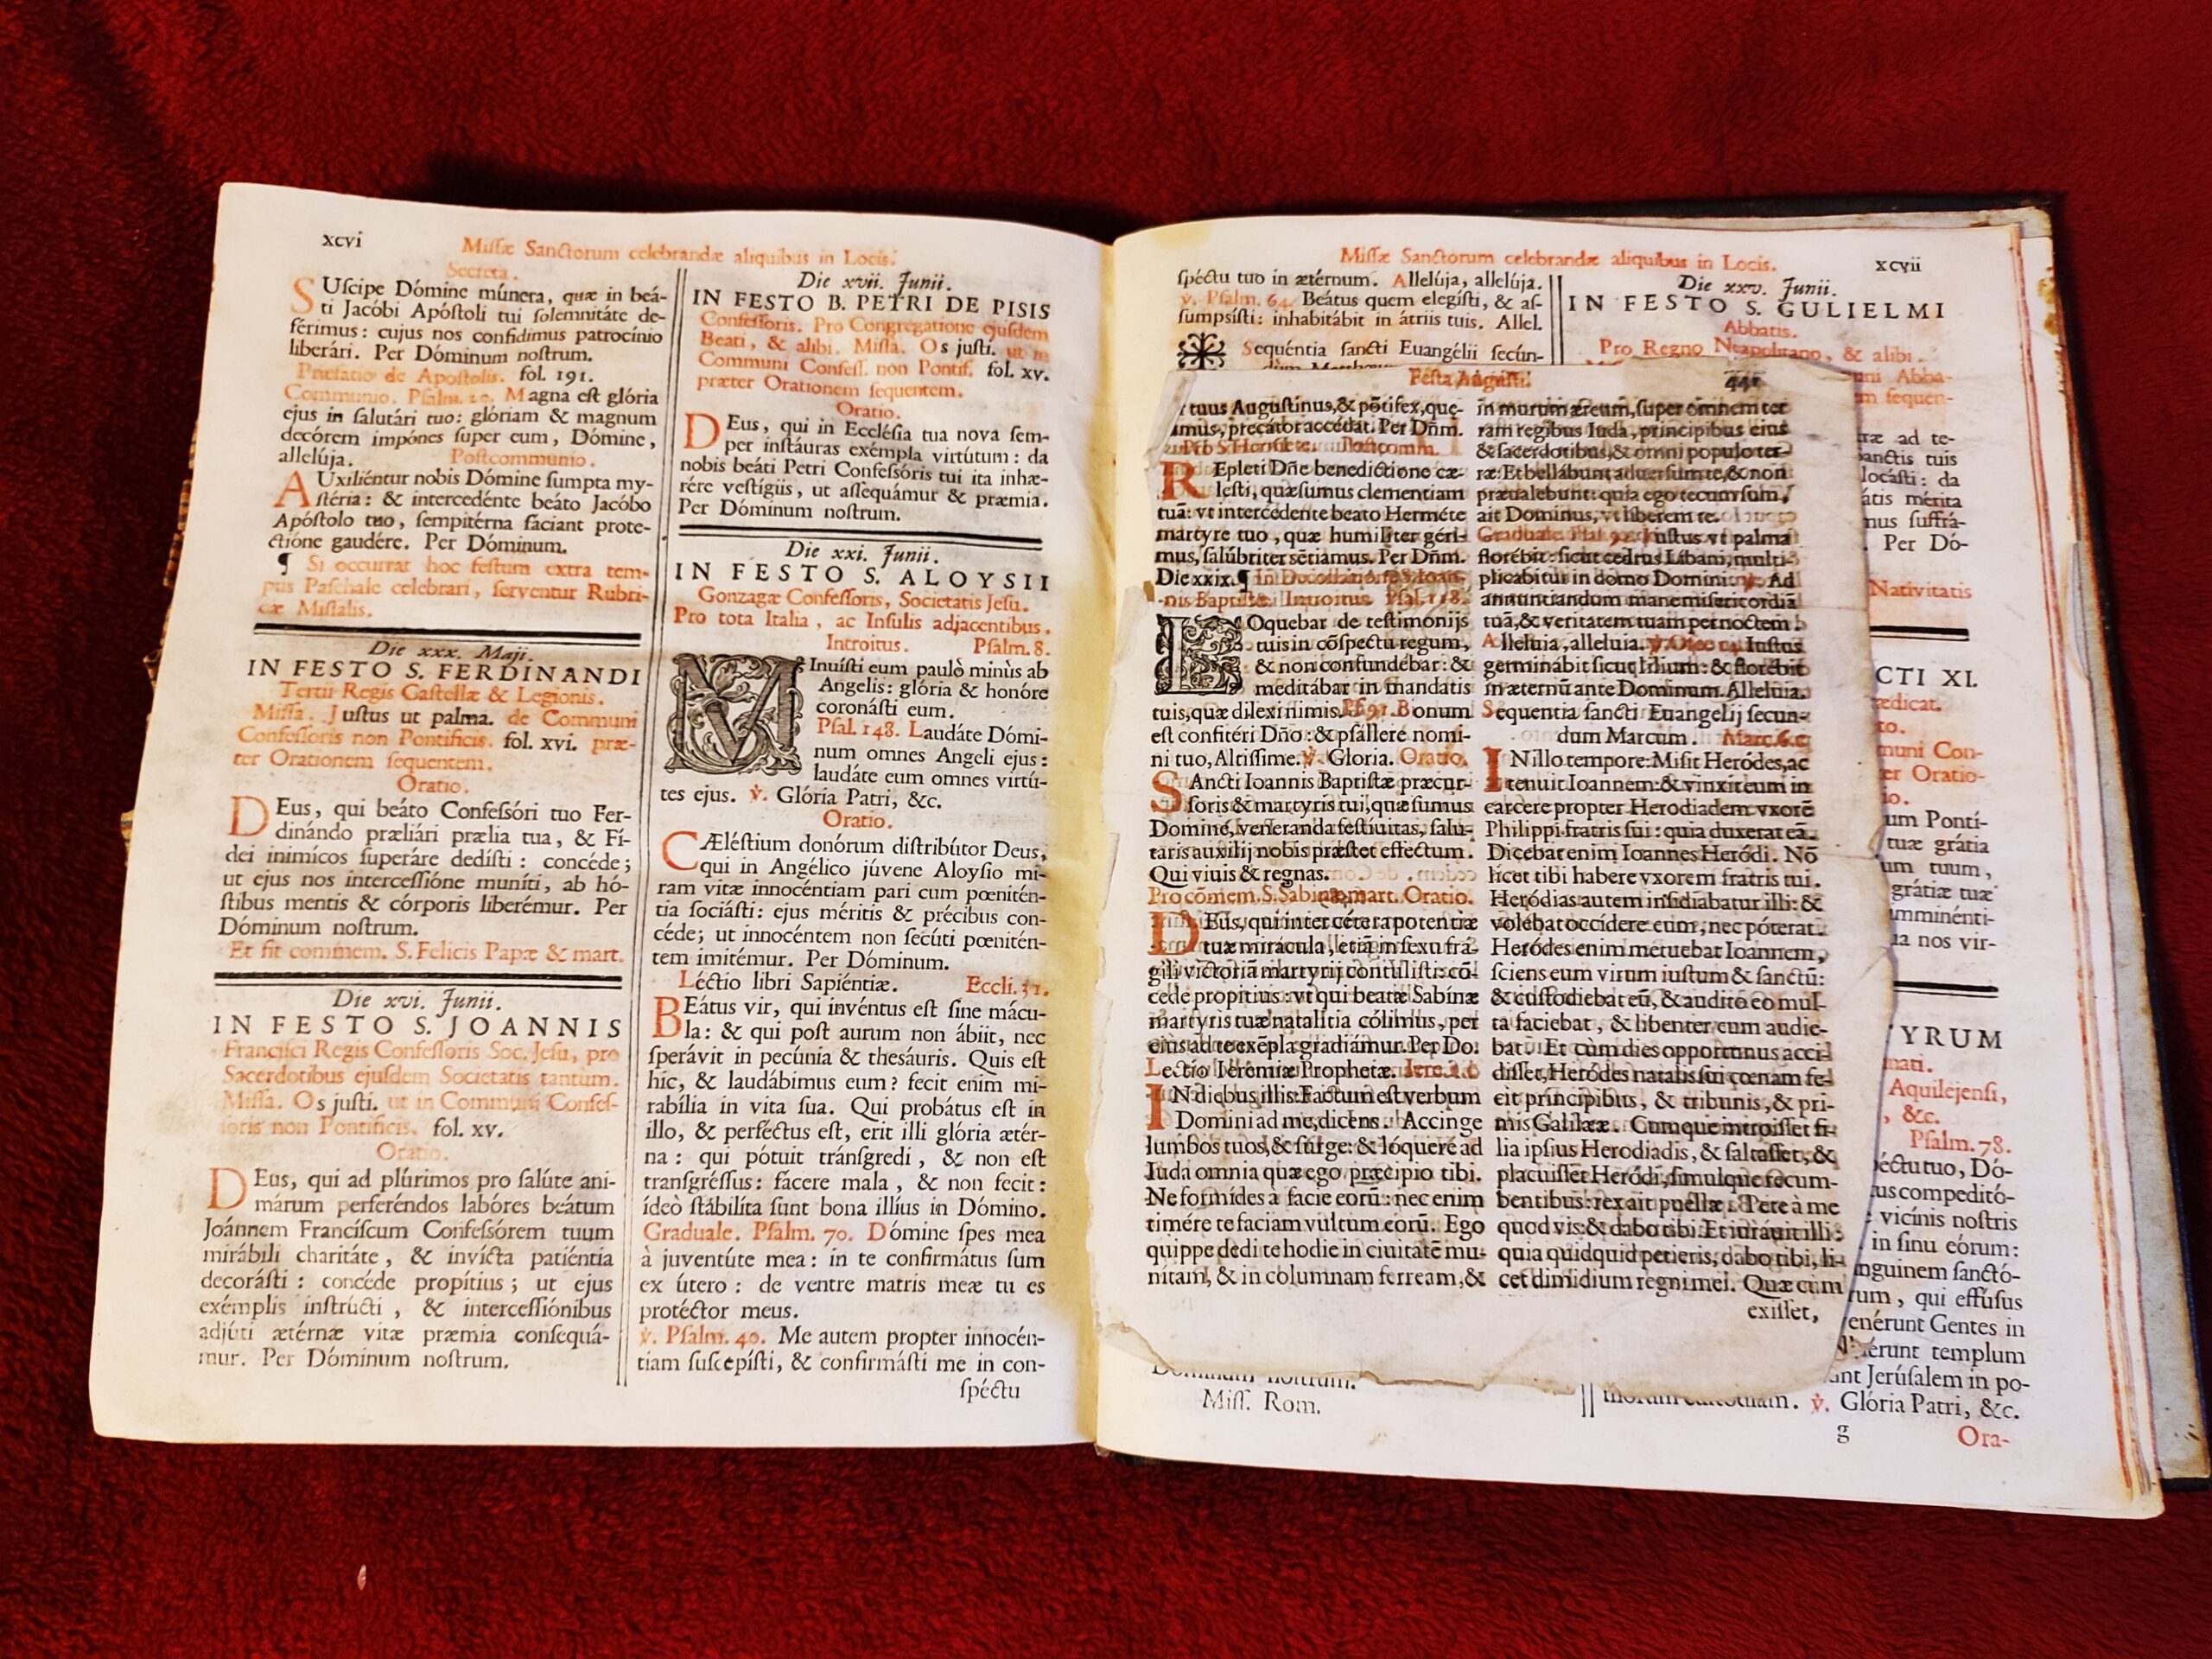 xcvi
Missæ Sanctorum celebrandæ aliquibus in Locis.
Secreta.
SUscipe Dómine múnera, quæ in beá-
ti Jacóbi Apóstoli tui solemnitáte de-
férimus: cujus nos confídimus patrocínio
liberári. Per Dóminum nostrum.
Præfatio de Apostolis. fol. 191.
Communio. Psalm. 20. Magna est glória
ejus in salutári tuo: glóriam & magnum
decórem impónes super eum, Dómine,
allelúja. Postcommunio.
AUxiliéntur nobis Dómine sumpta my-
stéria: & intercedénte beáto Jacóbo
Apóstolo tuo, sempitérna fáciant prote-
ctióne gaudére. Per Dóminum.
¶ Si occurrat hoc festum extra tem-
pus Paschale celebrari, serventur Rubri-
cæ Missalis.
Die xxx. Maji.
IN FESTO S. FERDINANDI
Tertii Regis Castellæ & Legionis.
Missa. Justus ut palma. de Communi
Confessoris non Pontificis. fol. xvi. præ-
ter Orationem sequentem.
Oratio.
DEus, qui beáto Confessóri tuo Fer-
dinándo præliári prælia tua, & Fí-
dei inimícos superáre dedísti: concéde;
ut ejus nos intercessióne muníti, ab hó-
stibus mentis & córporis liberémur. Per
Dóminum nostrum.
Et fit commem. S. Felicis Papæ & mart.
Die xvi. Junii.
IN FESTO S. JOANNIS
Francisci Regis Confessoris Soc. Jesu, pro
Sacerdotibus ejusdem Societatis tantum.
Missa. Os justi. ut in Communi Confes-
soris non Pontificis. fol. xv.
Oratio.
DEus, qui ad plúrimos pro salúte ani-
márum perferéndos labóres beátum
Joánnem Francíscum Confessórem tuum
mirábili charitáte, & invícta patiéntia
decorásti: concéde propítius; ut ejus
exémplis instrúcti, & intercessiónibus
adjúti ætérnæ vitæ præmia consequá-
mur. Per Dóminum nostrum.
Die xvii. Junii.
IN FESTO B. PETRI DE PISIS
Confessoris. Pro Congregatione ejusdem
Beati, & alibi. Missa. Os justi. ut in
Communi Confess. non Pontif. fol. xv.
præter Orationem sequentem.
Oratio.
DEus, qui in Ecclésia tua nova sem-
per instáuras exémpla virtútum: da
nobis beáti Petri Confessóris tui ita inhæ-
rére vestígiis, ut assequámur & præmia.
Per Dóminum nostrum.
Die xxi. Junii.
IN FESTO S. ALOYSII
Gonzagæ Confessoris, Societatis Jesu.
Pro tota Italia, ac Insulis adjacentibus.
Introitus. Psalm. 8.
MInuísti eum paulò minùs ab
Angelis: glória & honóre
coronásti eum.
Psal. 148. Laudáte Dómi-
num omnes Angeli ejus:
laudáte eum omnes virtú-
tes ejus. ℣. Glória Patri, &c.
Oratio.
CÆléstium donórum distribútor Deus,
qui in Angélico júvene Aloysio mi-
ram vitæ innocéntiam pari cum pœnitén-
tia sociásti: ejus méritis & précibus con-
céde; ut innocéntem non secúti pœnitén-
tem imitémur. Per Dóminum.
Léctio libri Sapiéntiæ. Eccli. 31.
BEátus vir, qui invéntus est sine mácu-
la: & qui post aurum non ábiit, nec
sperávit in pecúnia & thesáuris. Quis est
hic, & laudábimus eum? fecit enim mi-
rabília in vita sua. Qui probátus est in
illo, & perféctus est, erit illi glória ætér-
na: qui pótuit tránsgredi, & non est
transgréssus: fácere mala, & non fecit:
ídeò stábilita sunt bona illíus in Dómino.
Graduale. Psalm. 70. Dómine spes mea
à juventúte mea: in te confirmátus sum
ex útero: de ventre matris meæ tu es
protéctor meus.
℣. Psalm. 40. Me autem propter innocén-
tiam suscepísti, & confirmásti me in con-
spéctu
Missæ Sanctorum celebrandæ aliquibus in Locis.
xcvii
spéctu tuo in ætérnum. Allelúja, allelúja.
℣. Psalm. 64. Beátus quem elegísti, & as-
sumpsísti: inhabitábit in átriis tuis. Allel.
Sequéntia sancti Euangélii secún-
Die xxv. Junii.
IN FESTO S. GULIELMI
Abbatis.
Pro Regno Neapolitano, & alibi.
Festa Augusti.
tuus Augustinus, & põtifex, quę-
sumus, precator accédat. Per Dñm.
Pro S. Hermete. Postcomm.
REpleti Dñe benedictione cæ-
lesti, quæsumus clementiam
tuã: vt intercedente beato Herméte
martyre tuo, quæ humiliter géri-
mus, salúbriter sẽtiamus. Per Dñm.
Die xxix. ¶ In Decollatione S. Ioan-
nis Baptistæ. Introitus. Psal. 118.
LOquebar de testimonijs
tuis in cõspectu regum,
& non confundébar: &
meditábar in mandatis
tuis, quæ dilexi nimis. Ps. 91. Bonum
est confitéri Dño: & psállere nomi-
ni tuo, Altissime. ℣. Gloria. Oratio.
SAncti Ioannis Baptistæ præcur-
soris & martyris tui, quæsumus
Domine, veneranda festiuitas, salu-
taris auxilij nobis præstet effectum.
Qui viuis & regnas.
Pro cõmem. S. Sabinæ mart. Oratio.
DEus, qui inter cétera potentiæ
tuæ mirácula, etiã in sexu frá-
gili victoriã martyrij contulisti: cõ-
cede propitius: vt qui beatæ Sabínæ
martyris tuæ natalitia cólimus, per
eius ad te exẽpla gradiámur. Per Do.
Lectio Ieremiæ Prophetæ. Iere. 1.
IN diebus illis: Factum est verbum
Domini ad me, dicens. Accinge
lumbos tuos, & surge: & lóquere ad
Iuda omnia quæ ego præcipio tibi.
Ne formídes à facie eorũ: nec enim
timére te faciam vultum eorũ. Ego
quippe dedi te hodie in ciuitatẽ mu-
nitam, & in columnam ferream, &
in murum æreum, super omnem ter
ram regibus Iuda, principibus eius
& sacerdotibus, & omni populo ter-
ræ: Et bellábunt aduersum te, & non
præualebunt: quia ego tecum sum,
ait Dominus, vt liberem te.
Graduale. Psal. 91. Iustus vt palma
florébit: sicut cedrus Libani, multi-
plicabitur in domo Domini. ℣. Ad
annuntiandum mane misericordiã
tuã, & veritatem tuam per noctem.
Alleluia, alleluia. ℣. Osee 14. Iustus
germinábit sicut lilium: & florébit
in æternũ ante Dominum. Alleluia.
Sequentia sancti Euangelij secun-
dum Marcum. Marc. 6.
IN illo tempore: Misit Heródes, ac
tenuit Ioannem: & vinxit eum in
carcere propter Herodiadem vxorẽ
Philippi fratris sui: quia duxerat eã.
Dicebat enim Ioannes Heródi. Nõ
licet tibi habere vxorem fratris tui.
Heródias autem insidiabatur illi: &
volébat occídere eum, nec póterat.
Heródes enim metuebat Ioannem,
sciens eum virum iustum & sanctũ:
& custodiebat eũ, & audito eo mul-
ta faciebat, & libenter eum audie-
bat. Et cùm dies opportunus acci-
disset, Heródes natalis sui cœnam fe-
cit principibus, & tribunis, & pri-
mis Galilææ. Cumque introisset fi-
lia ipsius Herodiadis, & saltasset, &
placuisset Heródi, simulque recum-
bentibus: rex ait puellæ: Pete à me
quod vis: & dabo tibi. Et iuráuit illi:
quia quidquid petieris, dabo tibi, li-
cet dimidium regni mei. Quæ cùm
exisset,
Abba-
sequen-
ad te-
sanctis tuis
locásti: da
mérita
suffrá-
Per Dó-
Nativitatis
CTI XI.
Con-
Oratio-
Pontí-
tuæ grátia
tuum,
grátiæ tuæ
imminénti-
nos vir-
TYRUM
Aquilejensi,
&c.
Psalm. 78.
tuo, Dó-
compeditó-
vicínis nostris
in sinu eórum:
sanctó-
rum, qui effúsus
venérunt Gentes in
templum
Jerúsalem in po-
℣. Glória Patri, &c.
Miss. Rom.
g
Ora-